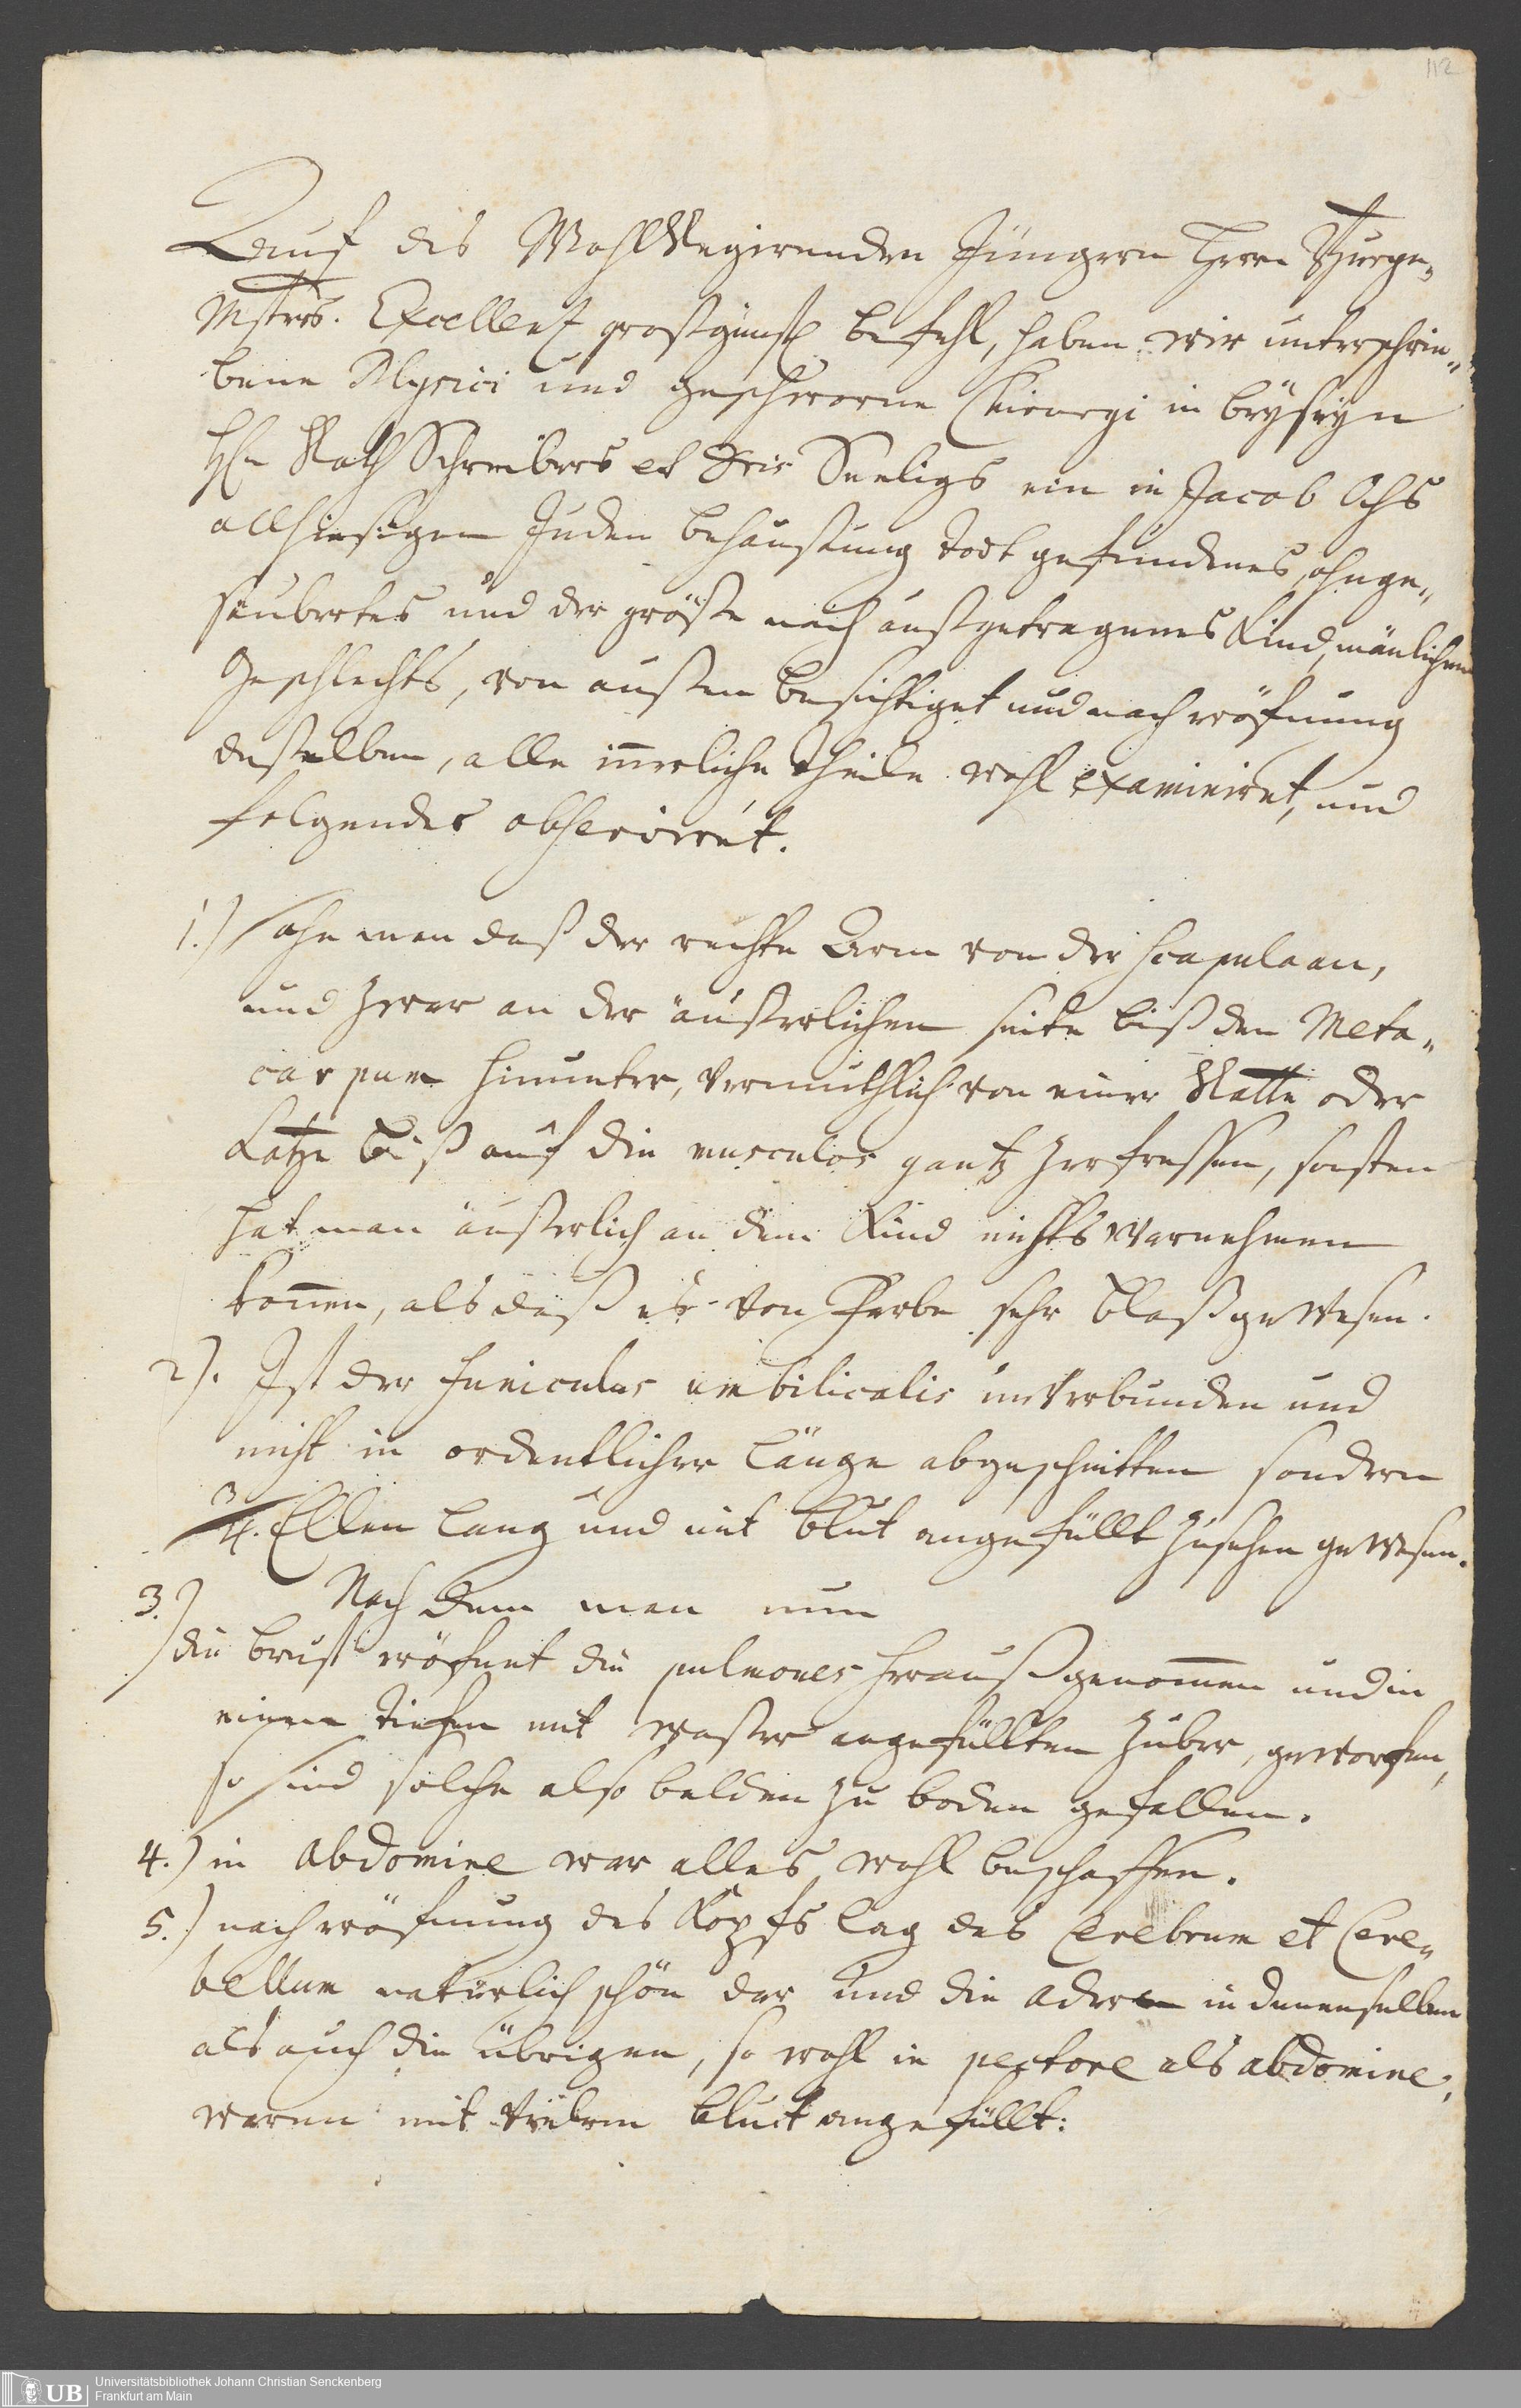 112
Auf des WohlRegierenden Jüngern Herrn Burge„
Mstrs. Excellenz grosgünstl befehl, haben wir unterschrie„
bene Physici und geschworne Chirurgi in beyseyn
Hh Rath Schreibers et Seeligs ein in Jacob Ochs
allhiesigen Juden behaußung todt gefundenes, ohnge„
säubertes und der größe nach außgetragenes Kind, mänlichen
Geschlechts, von außen besichtiget und nach eröfnung
deßelben, alle innerliche theile wohl examiniret, und
folgendes observiret.
1.) sahe man daß der rechte Arm von der scapula an,
und zwar an der äußerlichen seite biß den Meta„
carpum hinunter, vermuthlich von einer Ratte oder
Katze biß auf die musculos gantz zerfressen, sonsten
hat man äußerlich an dem Kind nichts warnehmen
können, als daß es von Farbe sehr blaß gewesen.
2). Ist der funiculus umbilicalis unverbunden und
nicht in ordentlicher länge abgeschnitten sondern
3/4. Ellen lang und mit blut angefüllt zusehen gewesen.
3.) Nach dem man nun
die brust eröfnet die pulmones heraußgenommen und in
einen tiefen mit waßer angefüllten Zuber, geworfen,
so sind solche also balden zu boden gefallen.
4.) in abdomine war alles wohl beschaffen.
5.) nach eröfnung des Kopfs lag das Cerebrum et Cere„
bellum natürlich schön dar und die adern in denenselben
als auch die übrigen, so wohl in pectore als abdomine,
waren mit vielem blut angefüllt:
UB Universitätsbibliothek Johann Christian Senckenberg
Frankfurt am Main